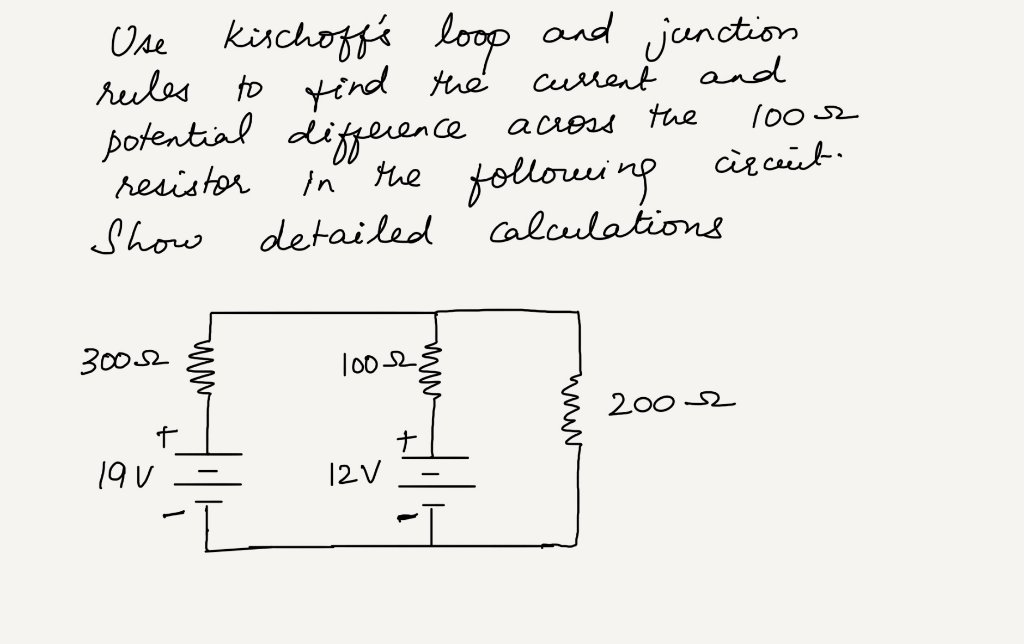 Use Kirchoff's loop and junction
rules to find the current and
potential difference across the 100 Ω
resistor in the following circuit.
Show detailed calculations
300Ω
100Ω
200Ω
+
+
19V
12V
-
-